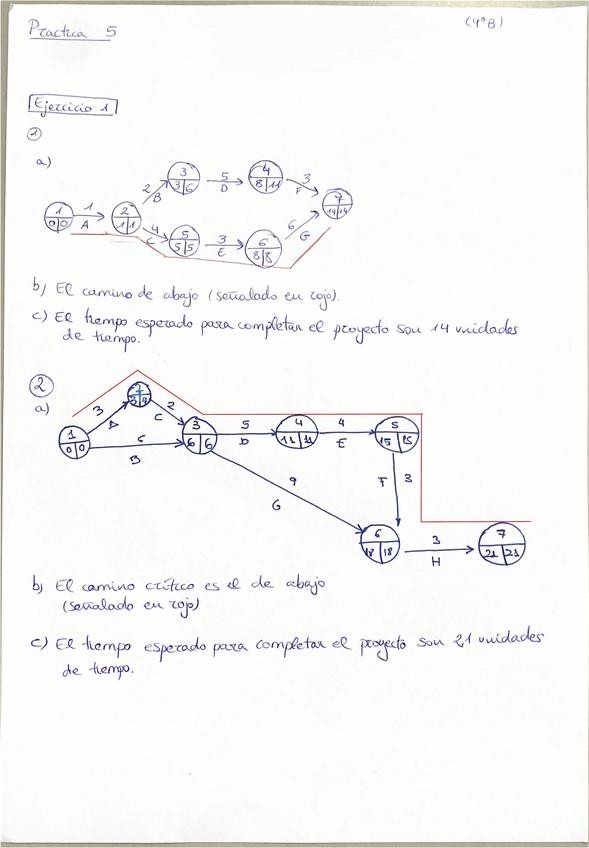 Practica 5
(4ºB)
Ejercicio 1
1
a)
1 0 0
1 A
2 1 1
2 B
3 3 6
5 D
4 8 11
3 F
7 14 14
4 C
5 5 5
3 E
6 8 8
6 G
b) El camino de abajo (señalado en rojo).
c) El tiempo esperado para completar el proyecto son 14 unidades
de tiempo.
2
a)
1 0 0
3 A
2
2 C
6 B
3 6 6
5 D
4 11 11
4 E
5 15 15
F 3
9
G
6 18 18
3 H
7 21 21
b) El camino crítico es el de abajo
(señalado en rojo)
c) El tiempo esperado para completar el proyecto son 21 unidades
de tiempo.